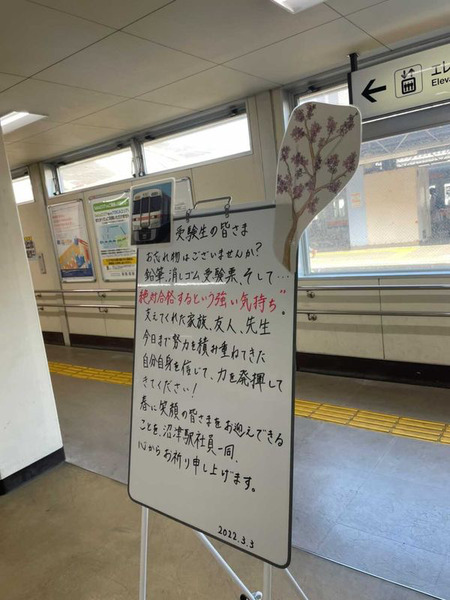 エレ
Elev
受験生の皆さま
お忘れ物はございませんか?
鉛筆、消しゴム、受験票、そして…
"絶対合格するという強い気持ち"。
支えてくれた家族、友人、先生
今日まで努力を積み重ねてきた
自分自身を信じて、力を発揮して
きてください!
春に笑顔の皆さまをお迎えできる
ことを、沼津駅社員一同、
心からお祈り申し上げます。
2022.3.3